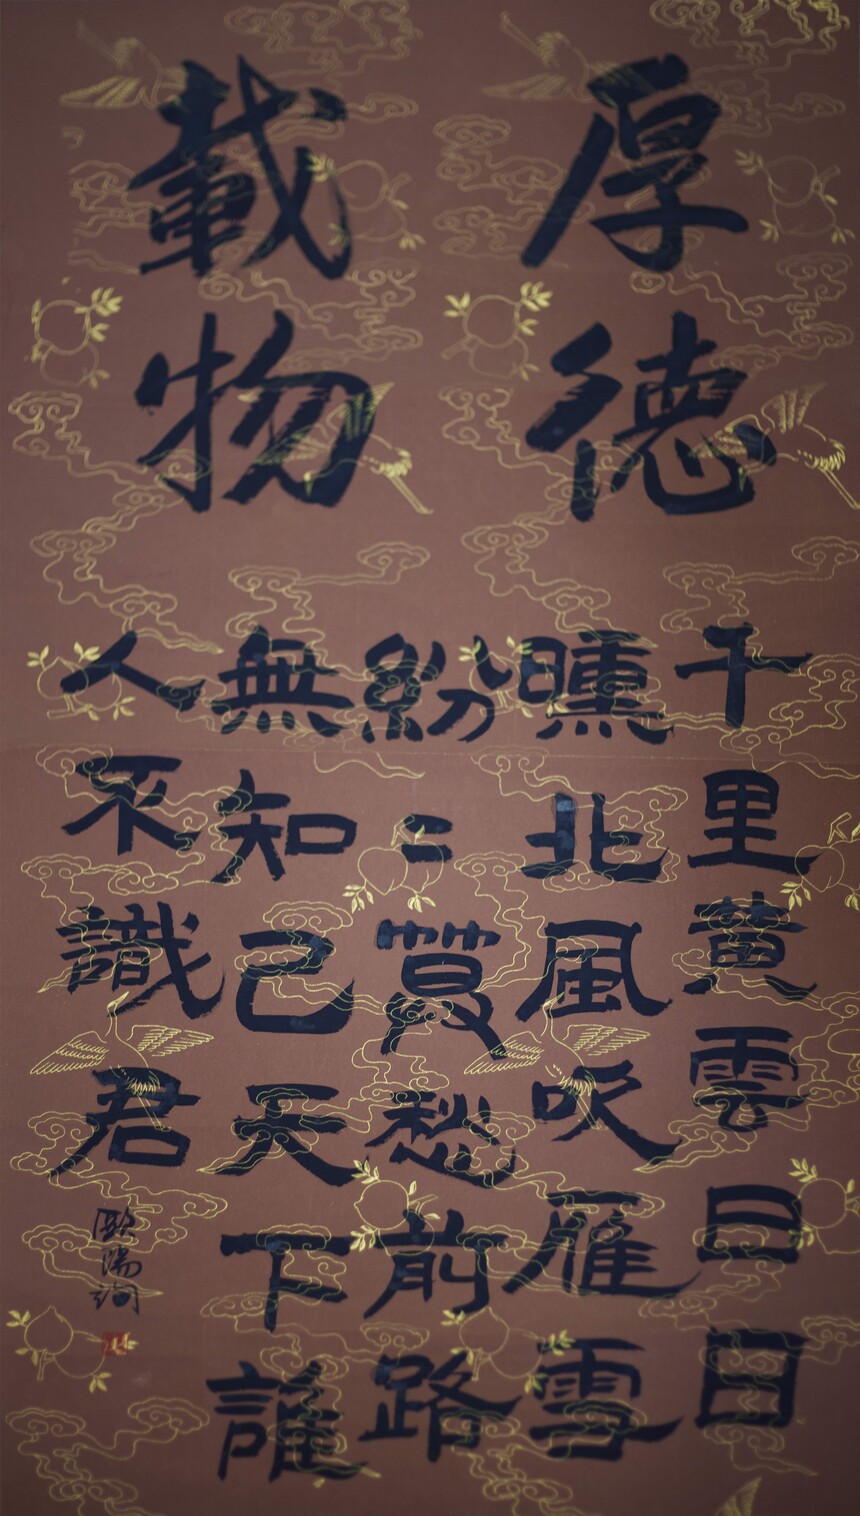 厚德
載物
千里黄雲曰日
曛北風吹雁雪
紛〻莫愁前路
無知己天下誰
人不識君
歐陽詢